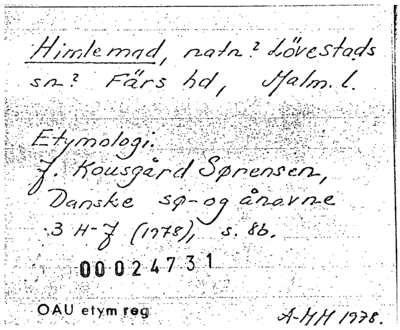 Himlemad, natn? Lövestads
sn? Färs hd, Malm. l.
Etymologi:
J. Kousgård Sørensen,
Danske sø- og ånavne
3 H-J (1978), s. 86.
00024731
OAU etym reg
A-HH 1978.